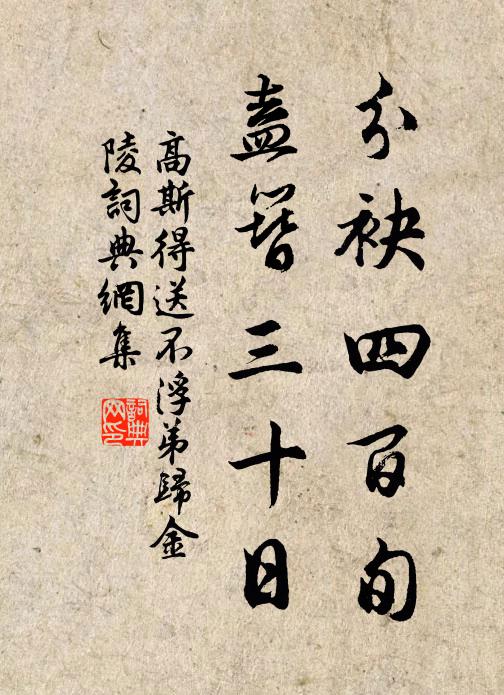 分袂四百旬
盍簪三十日
高斯得送不浮弟歸金
陵詞典網集
詞典
网印